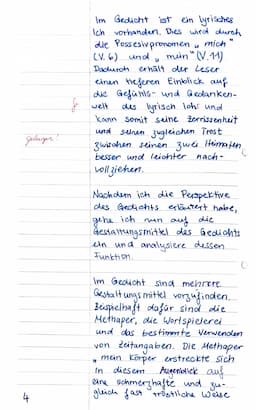 Im Gedicht ist ein lyrisches
Ich vorhanden. Dies wird durch
die Possesivpronomen „mich"
(V.6) und „mein" (V.11)
Dadurch erhält der Leser
einen tieferen Einblick auf
die Gefühls- und Gedanken-
welt des lyrisch Ichs und
kann somit seine Zerrissenheit
und seinen zugleichen Trost
zwischen seinen zwei Heimaten
besser und leichter nach-
vollziehen.
Nachdem ich die Perspektive
des Gedichts erläutert habe,
gehe ich nun auf die
Gestaltungsmittel des Gedichts
ein und analysiere dessen
Funktion.
Im Gedicht sind mehrere
Gestaltungsmittel vorzufinden.
Beispielhaft dafür sind die
Methaper, die Wortspielerei
und das bestimmte Verwenden
von Zeitangaben. Die Methaper
„mein Körper erstreckte sich
in diesem Augenblick auf
eine schmerzhafte und zu-
gleich fast tröstliche Weise
4